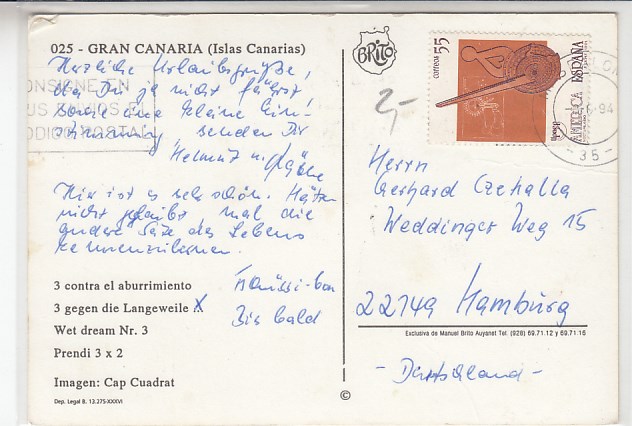 025 - GRAN CANARIA (Islas Canarias)
Herzliche Urlaubsgrüße,
da Du ja nicht fährst
sowie eine kleine Ein-
stimmung, senden Dir
Helmut u.
Hier ist es sehr schön. Hätte
nicht geglaubt mal die
andere Seite des Lebens
kennenzulernen.
Bis bald
3 contra el aburrimiento
3 gegen die Langeweile X
Wet dream Nr. 3
Prendi 3 x 2
Imagen: Cap Cuadrat
Dep. Legal B. 13.275-XXXVI
©
BRITO
2,-
correos 55
AMERICA ESPAÑA
CONSIGNE EN
SUS ENVIOS EL
CODIGO POSTAL
94
- 35 -
Herrn
Gerhard Czehalla
Weddinger Weg 15
22149 Hamburg
Exclusiva de Manuel Brito Auyanet Tel. (928) 69.71.12 y 69.71.16
- Deutschland -